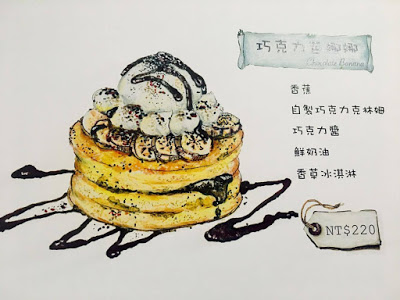 巧克力芭娜娜
Chocolate Banana
香蕉
自製巧克力克林姆
巧克力醬
鮮奶油
香草冰淇淋
NT$220